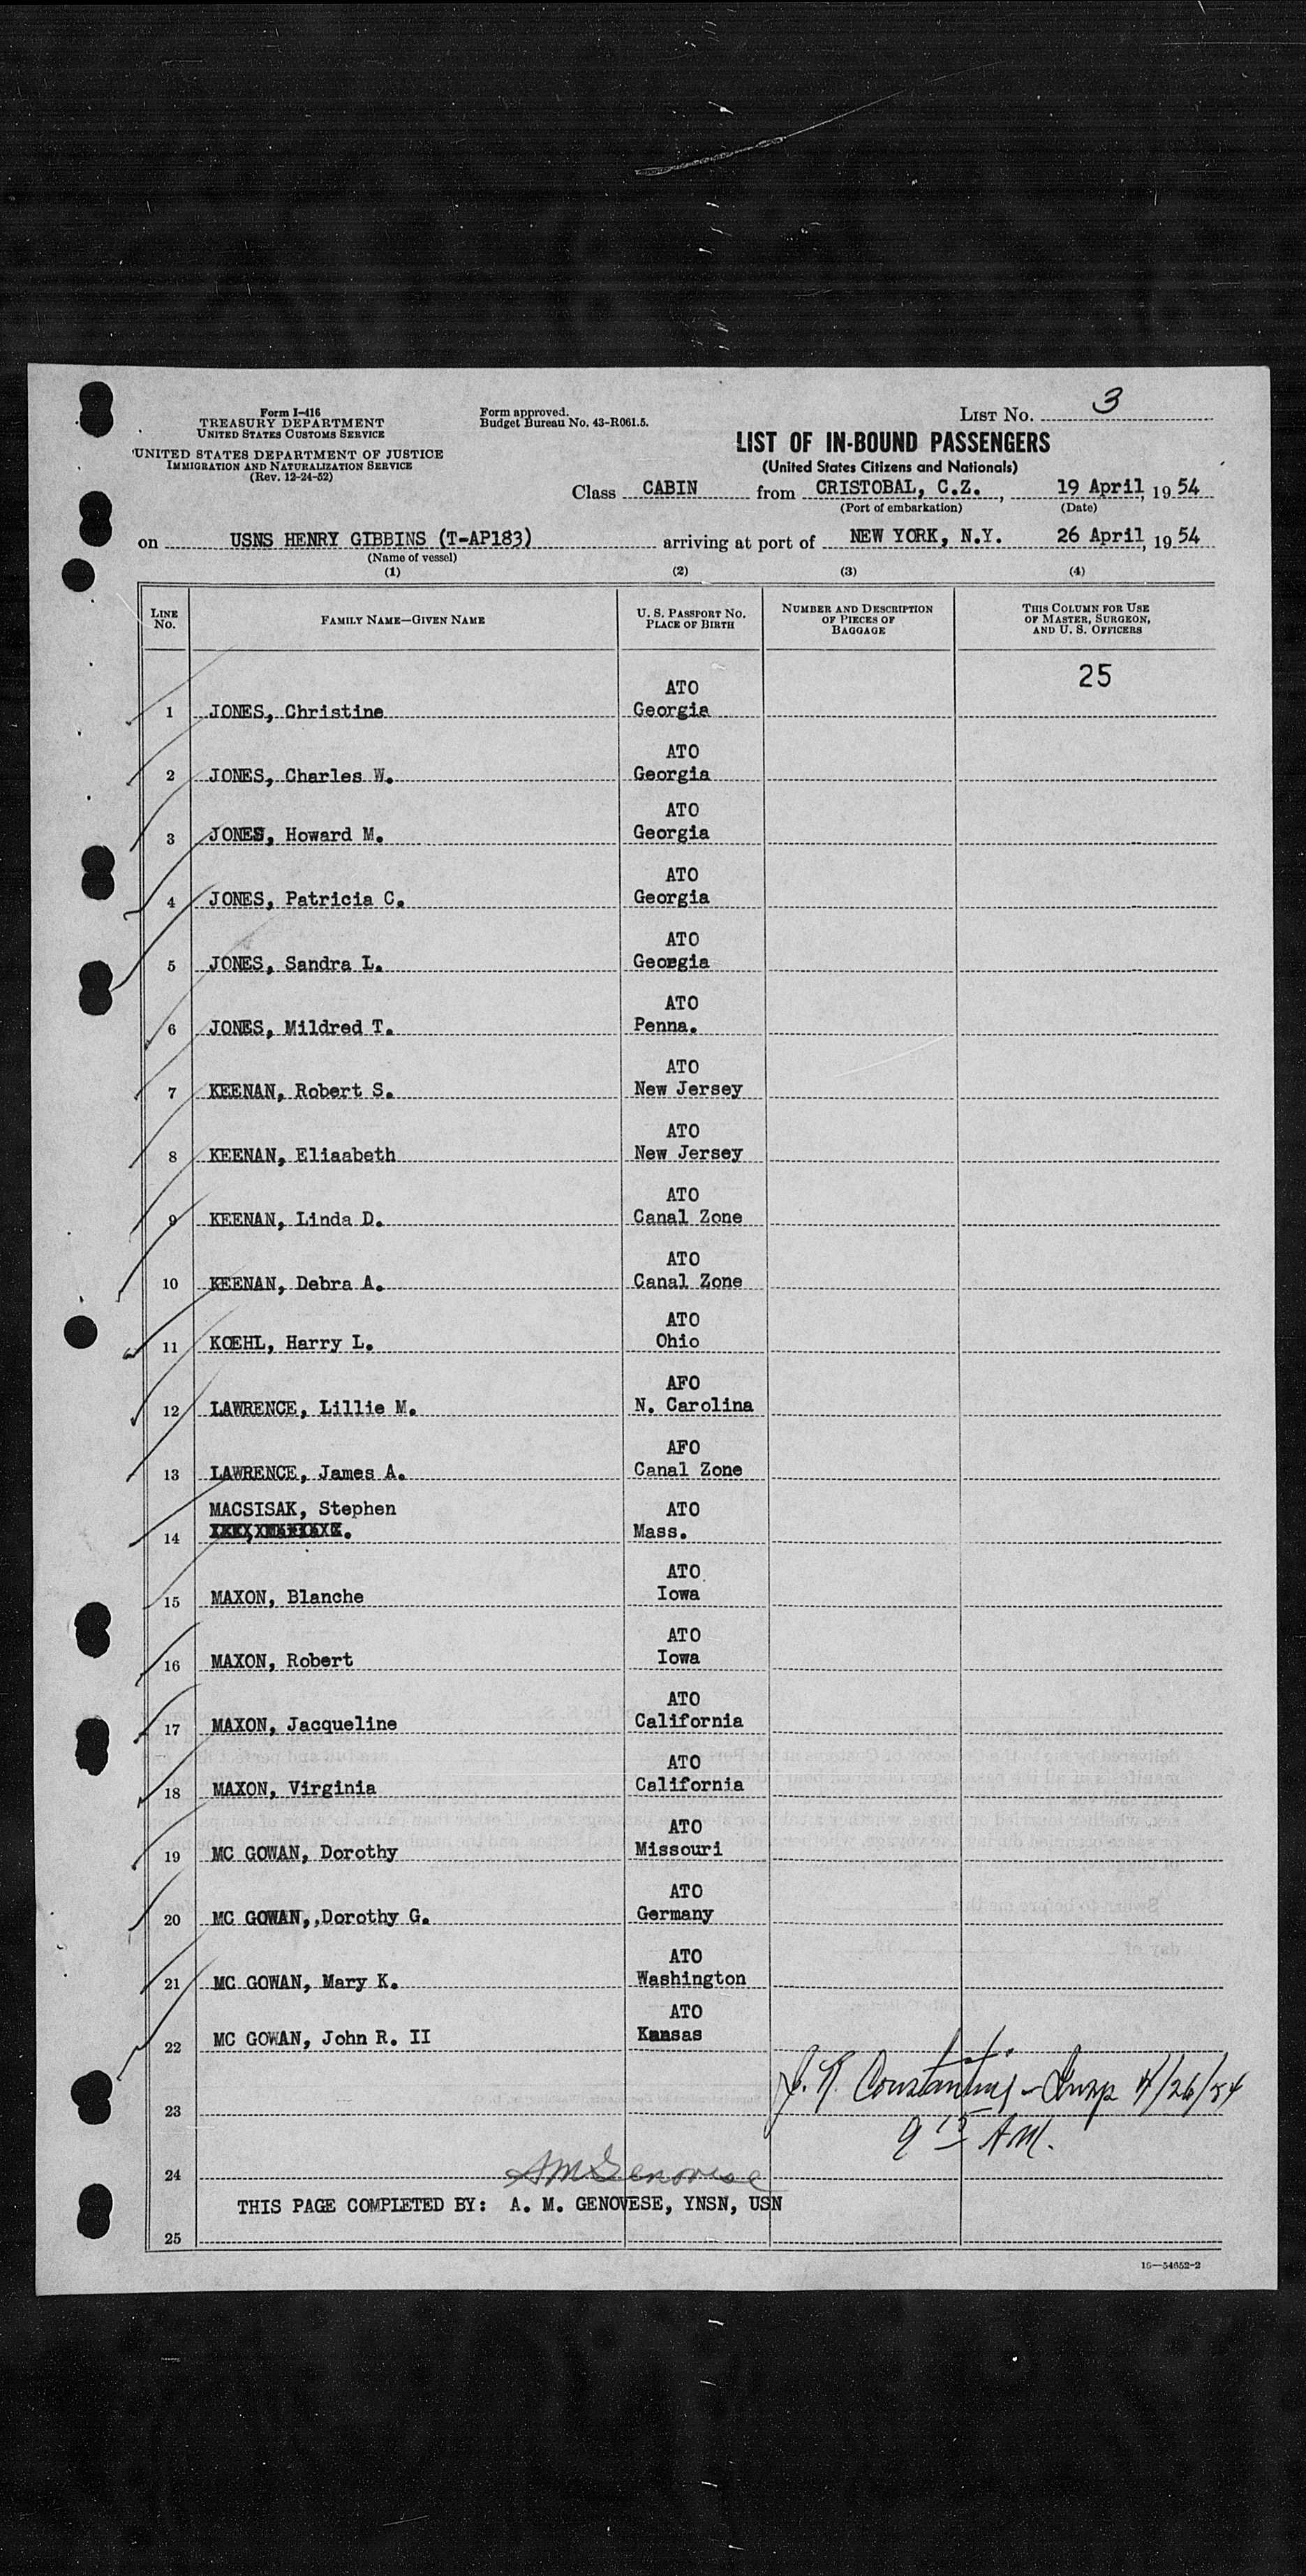 Form I-416
TREASURY DEPARTMENT
UNITED STATES CUSTOMS SERVICE
UNITED STATES DEPARTMENT OF JUSTICE
IMMIGRATION AND NATURALIZATION SERVICE
(Rev. 12-24-52)
Form approved.
Budget Bureau No. 43-R061.5.
LIST NO. 3
LIST OF IN-BOUND PASSENGERS
(United States Citizens and Nationals)
Class CABIN from CRISTOBAL, C.Z., 19 April, 19 54
(Port of embarkation) (Date)
on USNS HENRY GIBBINS (T-AP183) arriving at port of NEW YORK, N.Y. 26 April, 19 54
(Name of vessel)
(1) (2) (3) (4)
LINE No. FAMILY NAME—GIVEN NAME U. S. PASSPORT NO. PLACE OF BIRTH NUMBER AND DESCRIPTION OF PIECES OF BAGGAGE THIS COLUMN FOR USE OF MASTER, SURGEON, AND U. S. OFFICERS
25
ATO
1 JONES, Christine Georgia
ATO
2 JONES, Charles W. Georgia
ATO
3 JONES, Howard M. Georgia
ATO
4 JONES, Patricia C. Georgia
ATO
5 JONES, Sandra L. Georgia
ATO
6 JONES, Mildred T. Penna.
ATO
7 KEENAN, Robert S. New Jersey
ATO
8 KEENAN, Eliaabeth New Jersey
ATO
9 KEENAN, Linda D. Canal Zone
ATO
10 KEENAN, Debra A. Canal Zone
ATO
11 KOEHL, Harry L. Ohio
AFO
12 LAWRENCE, Lillie M. N. Carolina
AFO
13 LAWRENCE, James A. Canal Zone
MACSISAK, Stephen ATO
14 Mass.
ATO
15 MAXON, Blanche Iowa
ATO
16 MAXON, Robert Iowa
ATO
17 MAXON, Jacqueline California
ATO
18 MAXON, Virginia California
ATO
19 MC GOWAN, Dorothy Missouri
ATO
20 MC GOWAN, Dorothy G. Germany
ATO
21 MC GOWAN, Mary K. Washington
ATO
22 MC GOWAN, John R. II Kansas
Insp 4/26/54
23
9 15 AM.
24 AMGenovese
THIS PAGE COMPLETED BY: A. M. GENOVESE, YNSN, USN
25
16—54652-2